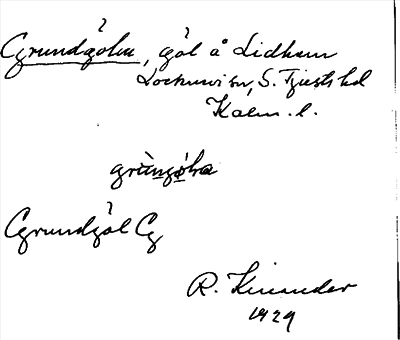 Grundgölen, göl å Lidhem
Locknevi sn, S. Tjusts hd
Kalm. l.
grùngö́la
Grundgöl Cg
R. Kinander
1929